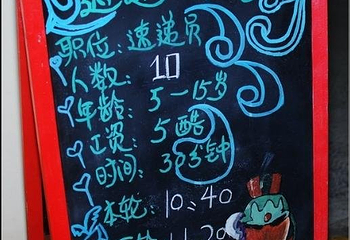 职位：速递员
人数：10
年龄：5-15岁
工资：5酷
时间：30分钟
本轮：10:40